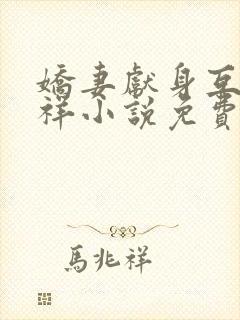 嬌妻獻身互
祥小說免費
馬兆祥